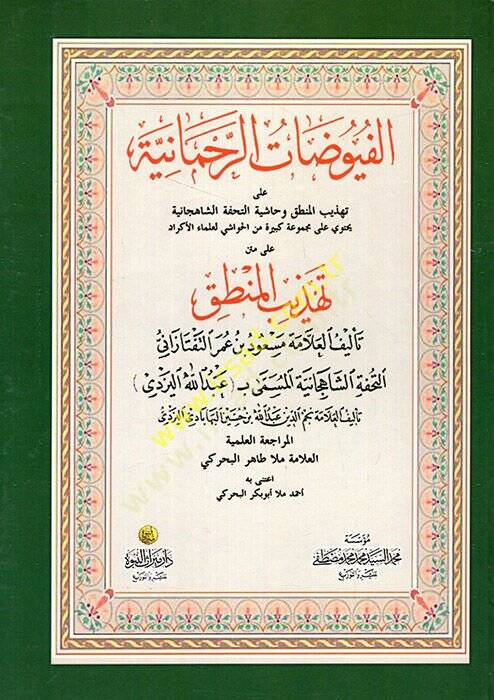 الفيوضات الرحمانية
على
تهذيب المنطق وحاشية التحفة الشاهجانية
يحتوي على مجموعة كبيرة من الحواشي لعلماء الأكراد
على متن
تهذيب المنطق
تأليف العلامة مسعود بن عمر التفتازاني
التحفة الشاهجانية المسمى بـ (عبد الله اليزدي)
تأليف العلامة نجم الدين عبد الله بن حسين البهابادي اليزدي
المراجعة العلمية
العلامة ملا طاهر البحركي
اعتنى به
أحمد ملا أبوبكر البحركي
مؤسسة
محمد السيد محمد محمد مصطفى
للنشر والتوزيع
دار ميراث النبوة
للنشر والتوزيع